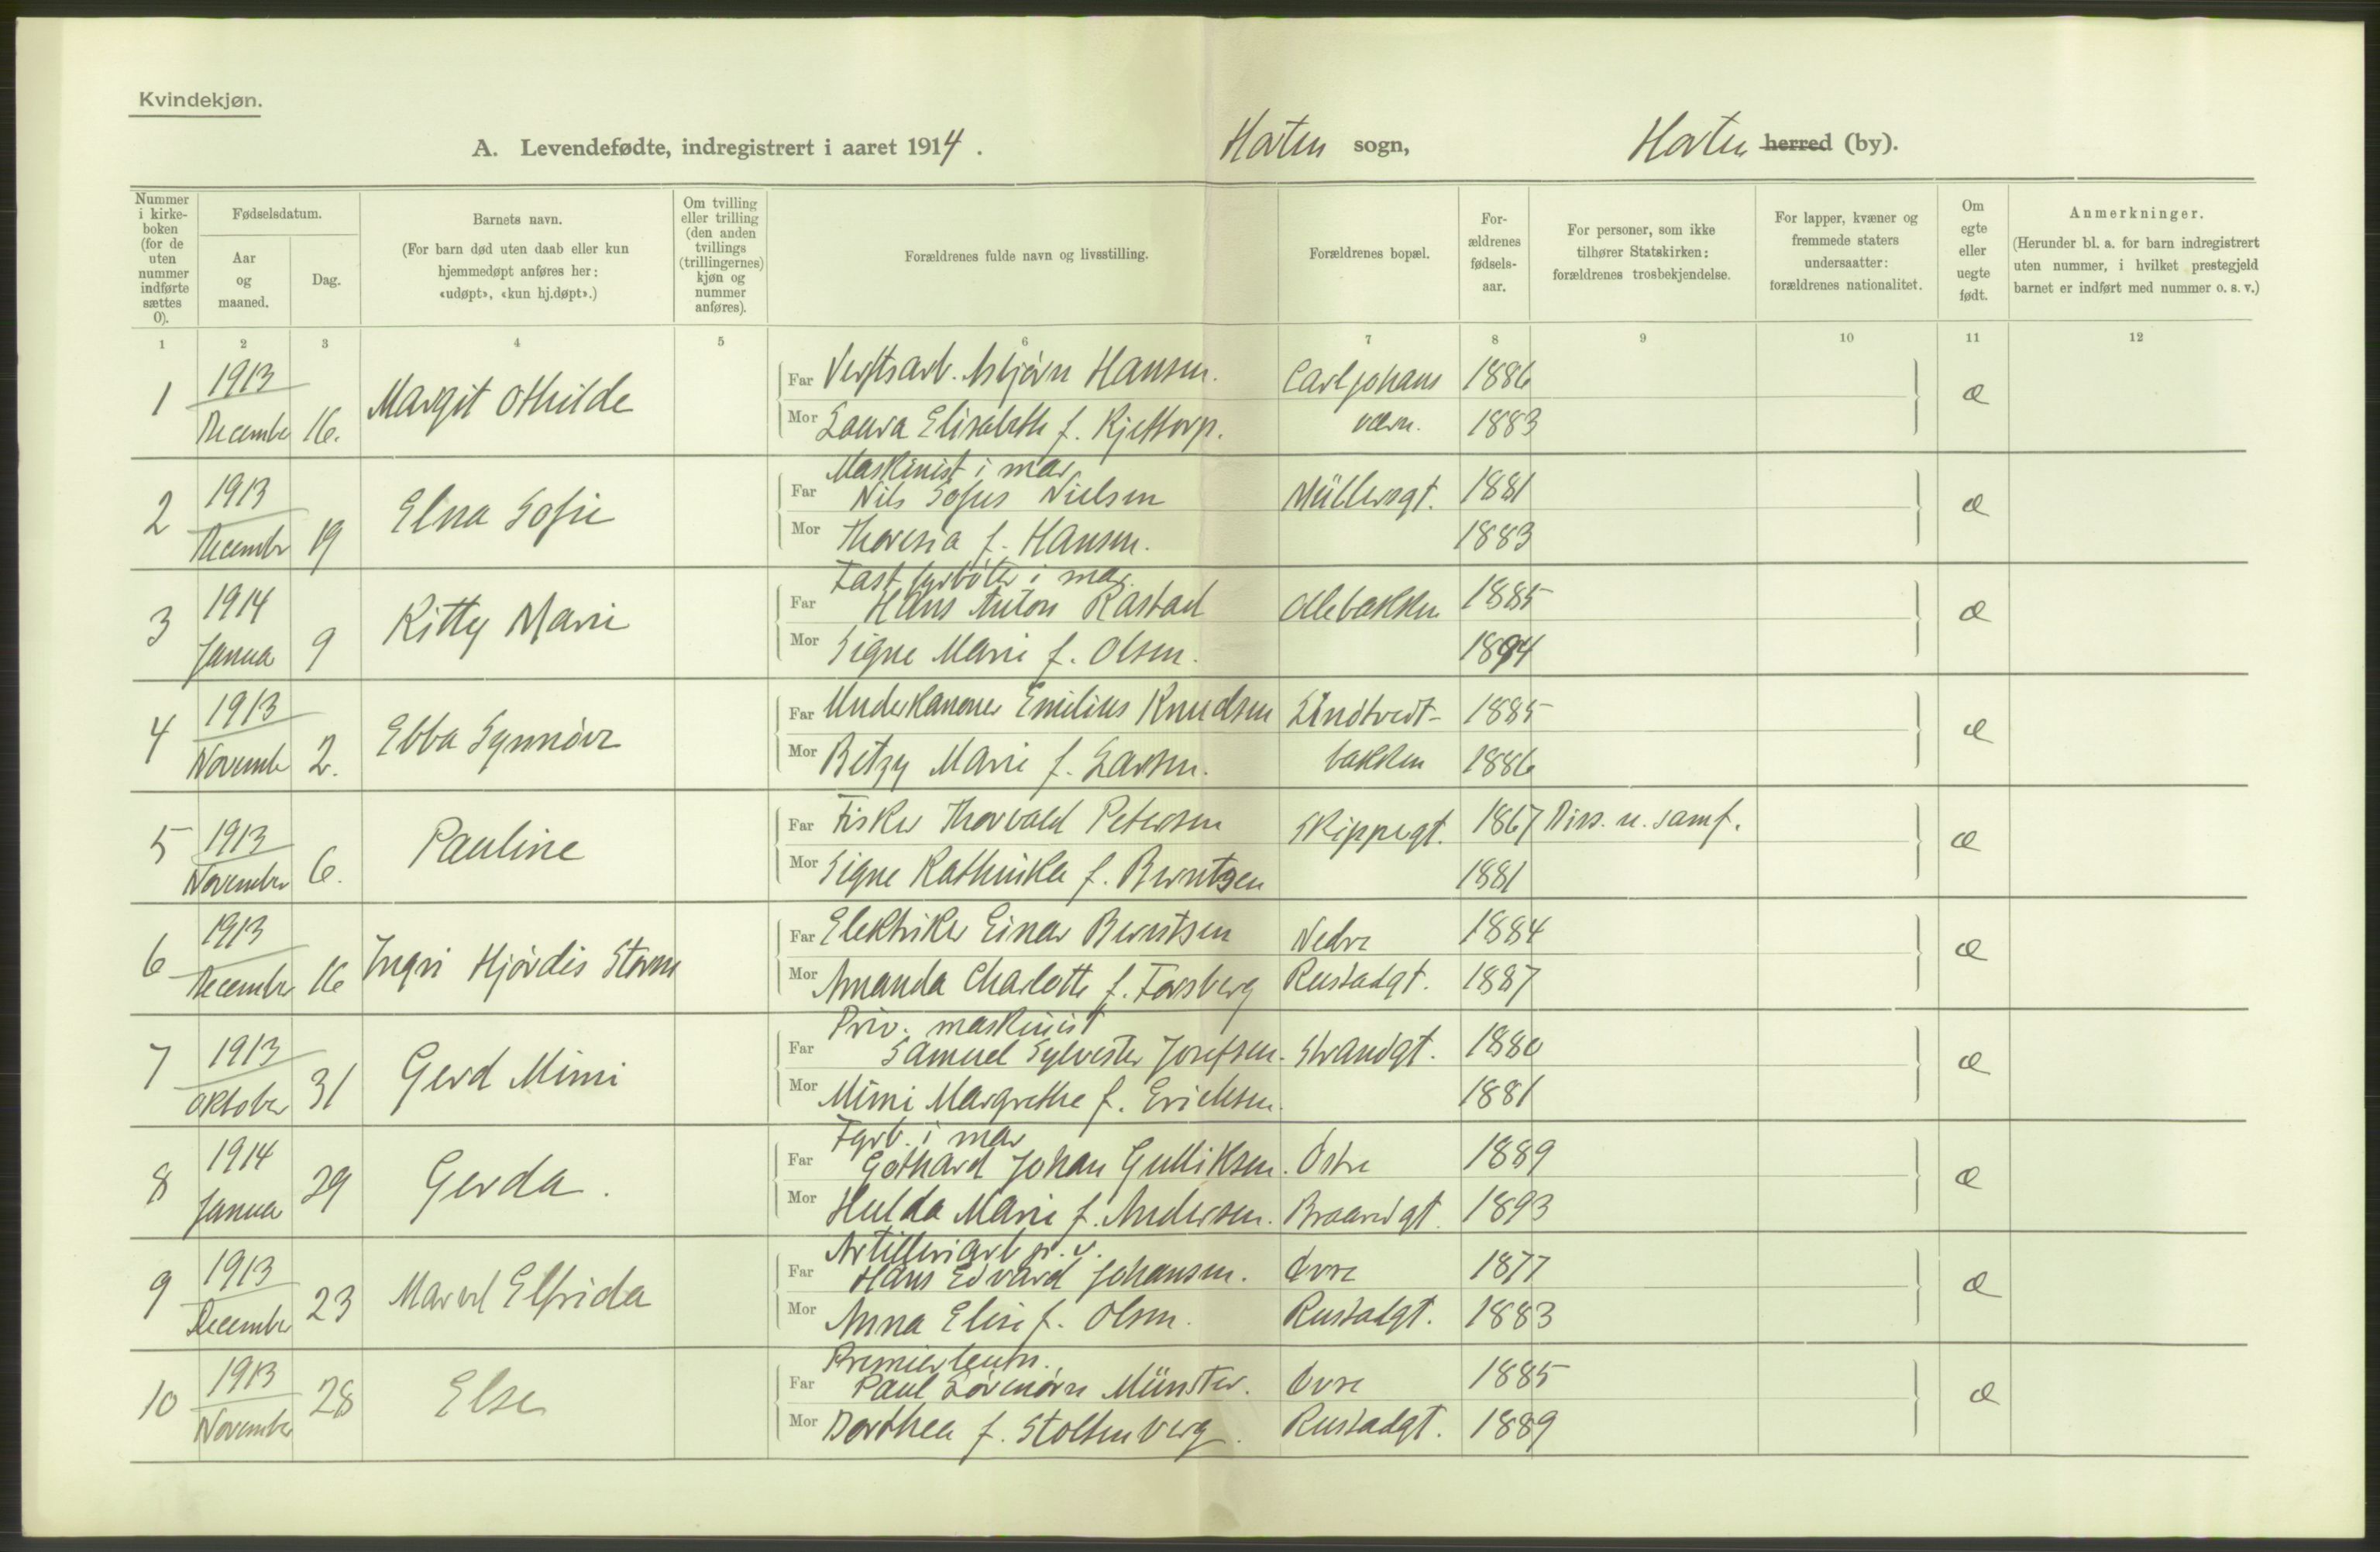 Kvindekjøn.
A. Levendefødte, indregistrert i aaret 1914.
Horten sogn,
Horten herred (by).
Nummer i kirke-boken (for de uten nummer indførte sættes 0).
Fødselsdatum.
Aar og maaned.
Dag.
Barnets navn.
(For barn død uten daab eller kun hjemmedøpt anføres her: «udøpt», «kun hj.døpt».)
Om tvilling eller trilling (den anden tvillings (trillingernes) kjøn og nummer anføres).
Forældrenes fulde navn og livsstilling.
Forældrenes bopæl.
For-ældrenes fødsels-aar.
For personer, som ikke tilhører Statskirken: forældrenes trosbekjendelse.
For lapper, kvæner og fremmede staters undersaatter: forældrenes nationalitet.
Om egte eller uegte født.
Anmerkninger.
(Herunder bl. a. for barn indregistrert uten nummer, i hvilket prestegjeld barnet er indført med nummer o. s. v.)
1 2 3 4 5 6 7 8 9 10 11 12
1 1913 December 16. Margit Othilde
Far Verftsarb. Asbjørn Hansen. Carljohans 1886
Mor Laura Elisabeth f. Kjettorp. værn. 1883 æ
2 1913 December 19 Elna Sofie
Maskinist i mar.
Far Nils Sofus Nielsen Müllersgt. 1881
Mor Theresia f. Hansen. 1883 æ
3 1914 Januar 9 Kitty Marie
Fast fyrbøter i mar.
Far Hans Anton Rastad Ollebakken 1885
Mor Signe Marie f. Olsen. 1894 æ
4 1913 November 2. Ebba Synnøve
Far Underkanoner Emilius Knudsen Lindtvedt- 1885
Mor Betzy Marie f. Larsen. bakken 1886 æ
5 1913 November 6. Pauline
Far Fisker Thorvald Petersen Skippergt. 1867 Diss. u. samf.
Mor Signe Kathinka f. Berntsen 1881 æ
6 1913 December 16 Ingri Hjørdis Storm
Far Elektriker Einar Berntsen Nedre 1884
Mor Amanda Charlotte f. Forsberg Rustadgt. 1887 æ
7 1913 Oktober 31 Gerd Mimi
Priv. maskinist
Far Samuel Sylvester Josefsen. Strandgt. 1880
Mor Mimi Margrethe f. Ericksen. 1881 æ
8 1914 Januar 29 Gerda.
Fyrb. i mar
Far Gothard Johan Gulliksen. Østre 1889
Mor Hulda Marie f. Andersen. Braarudgt. 1893 æ
9 1913 December 23 Marvel Elfrida
Artilleriarb. p. v.
Far Hans Edvard Johansen. Øvre 1877
Mor Anna Elise f. Olsen. Rustadgt. 1883 æ
10 1913 November 28 Else
Premierleutn.
Far Paul Løvenørn Münster. Øvre 1885
Mor Dorthea f. Stoltenberg. Rustadgt. 1889 æ